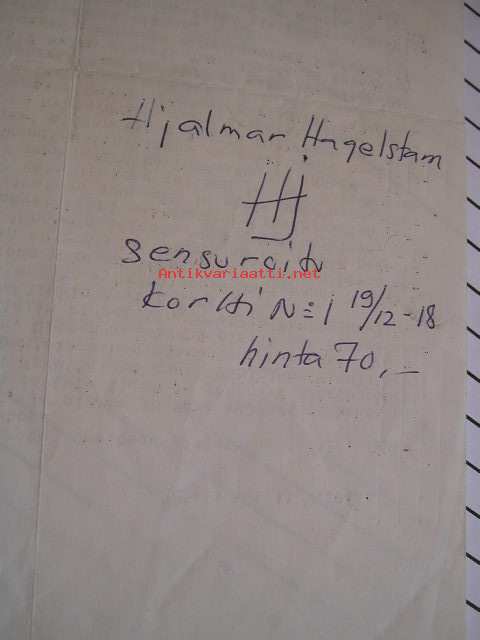 Hjalmar Hagelstam
HHj
Sensuroitu
Antikvariaatti.net
kortti N:i 19/12-18
hinta 70,-